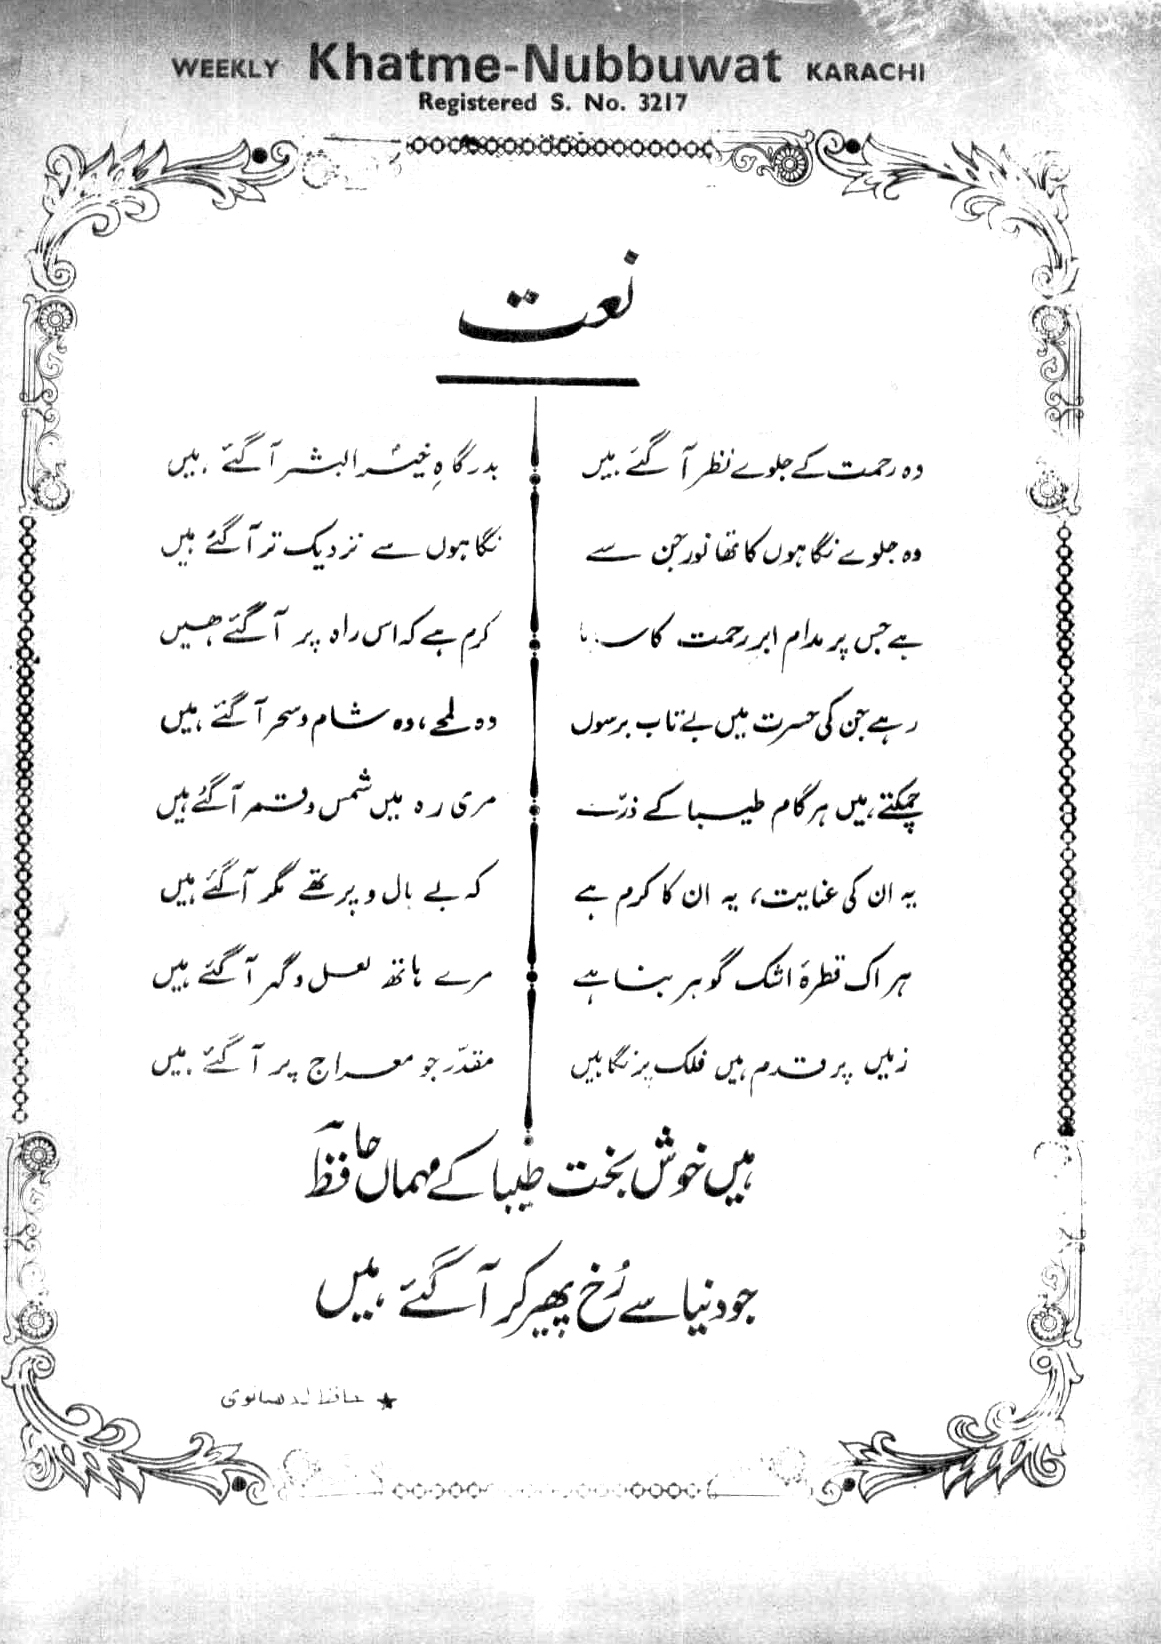 WEEKLY Khatme-Nubbuwat KARACHI
Registered S. No. 3217
نعت
وہ رحمت کے جلوے نظر آ گئے ہیں بدرگاہِ خیرُ البشر آ گئے ہیں
وہ جلوے نگاہوں کا تھا نور جن سے نگاہوں سے نزدیک تر آ گئے ہیں
ہے جس پر مدام ابرِ رحمت کا سایا کرم ہے کہ اس راہ پر آ گئے ہیں
رہے جن کی حسرت میں بے تاب برسوں وہ لمحے، وہ شام و سحر آ گئے ہیں
چمکتے ہیں ہر گام طیبا کے ذرّے مری رہ میں شمس و قمر آ گئے ہیں
یہ ان کی عنایت، یہ ان کا کرم ہے کہ بے بال و پر تھے مگر آ گئے ہیں
ہر اک قطرۂ اشک گوہر بنا ہے مرے ہاتھ لعل و گہر آ گئے ہیں
زمیں پر قدم ہیں فلک پر نگاہیں مقدّر جو معراج پر آ گئے ہیں
ہیں خوش بخت طیبا کے مہماں حافظؔ
جو دنیا سے رُخ پھیر کر آ گئے ہیں
★ حافظ لدھیانوی